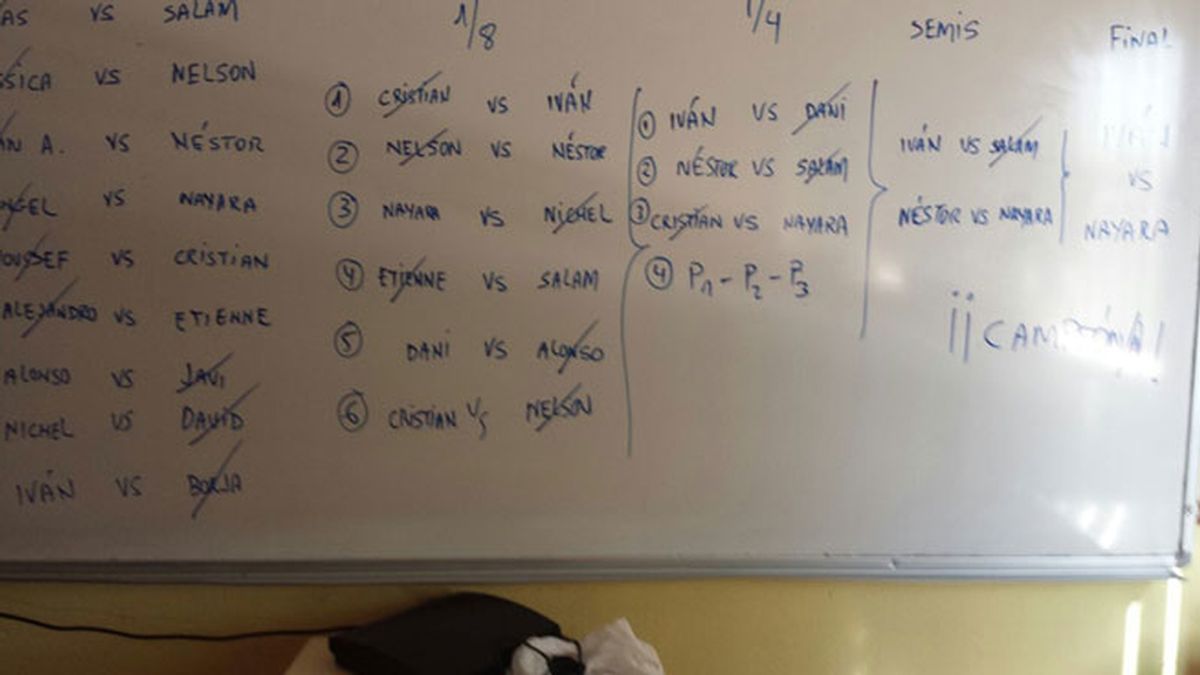 AS VS SALAM
SSICA VS NELSON
ÁN A. VS NÉSTOR
NGEL VS NAYARA
YOUSSEF VS CRISTIAN
ALEJANDRO VS ETIENNE
ALONSO VS JAVI
NICHEL VS DAVID
IVÁN VS BORJA
1/8
① CRISTIAN VS IVÁN
② NELSON VS NÉSTOR
③ NAYARA VS NICHEL
④ ETIENNE VS SALAM
⑤ DANI VS ALONSO
⑥ CRISTIAN VS NELSON
1/4
① IVÁN VS DANI
② NÉSTOR VS SALAM
③ CRISTIAN VS NAYARA
④ P1 - P2 - P3
SEMIS
IVÁN VS SALAM
NÉSTOR VS NAYARA
FINAL
IVÁN
VS
NAYARA
¡¡CAMPEONA!